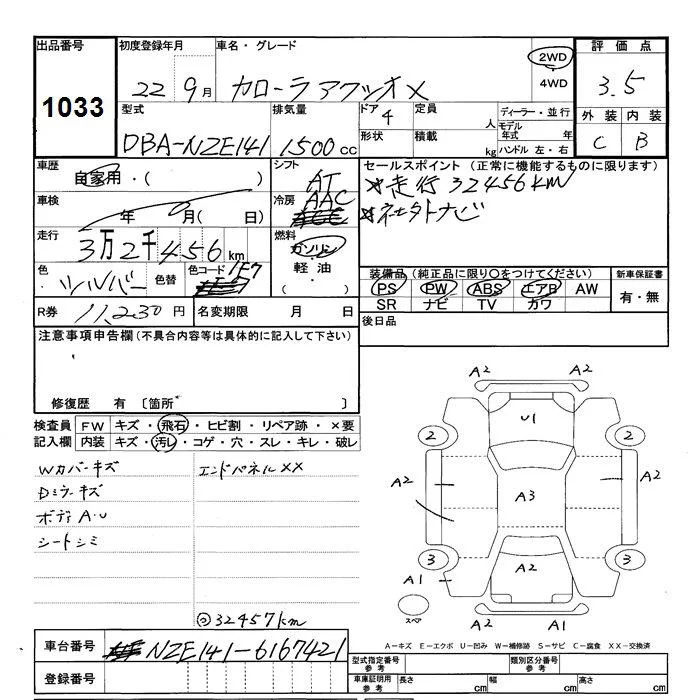 出品番号 初度登録年月 車名・グレード 2WD 評価点
1033 22 9月 カローラアクシオX 4WD 3.5
型式 排気量 ドア 4 定員 人 ディーラー・並行 外装 内装
DBA-NZE141 1500cc 形状 積載 kg モデル年式 年 ハンドル 左・右 C B
車歴 シフト セールスポイント (正常に機能するものに限ります)
自家用・( ) AT ☆走行32456km
車検 冷房 AAC ☆社外ナビ
年 月( 日)
走行 3万2千456km 燃料 ガソリン
色 シルバー 色替 色コード 1F7 軽油・( )
装備品 (純正品に限り○をつけてください) 新車保証書
PS PW ABS エアB AW 有・無
SR ナビ TV カワ
R券 11,230円 名変期限 月 日 後日品
注意事項申告欄(不具合内容等は具体的に記入して下さい)
修復歴 有 〔箇所 〕
検査員 FW キズ・飛石・ヒビ割・リペア跡・×要
記入欄 内装 キズ・汚レ・コゲ・穴・スレ・キレ・破レ
Wカバーキズ エンドパネルXX
Dミラーキズ
ボディA.U
シートシミ
32457km
A2 A2
U1
2 2
A2 A3 A2
3 3
A1 A2
スペア A2 A1
A－キズ E－エクボ U－凹み W－補修跡 S－サビ C－腐食 XX－交換済
車台番号 NZE141-6167421
登録番号
型式指定番号 参考 類別区分番号 参考
車庫証明用 参考 長さ cm 幅 cm 高さ cm